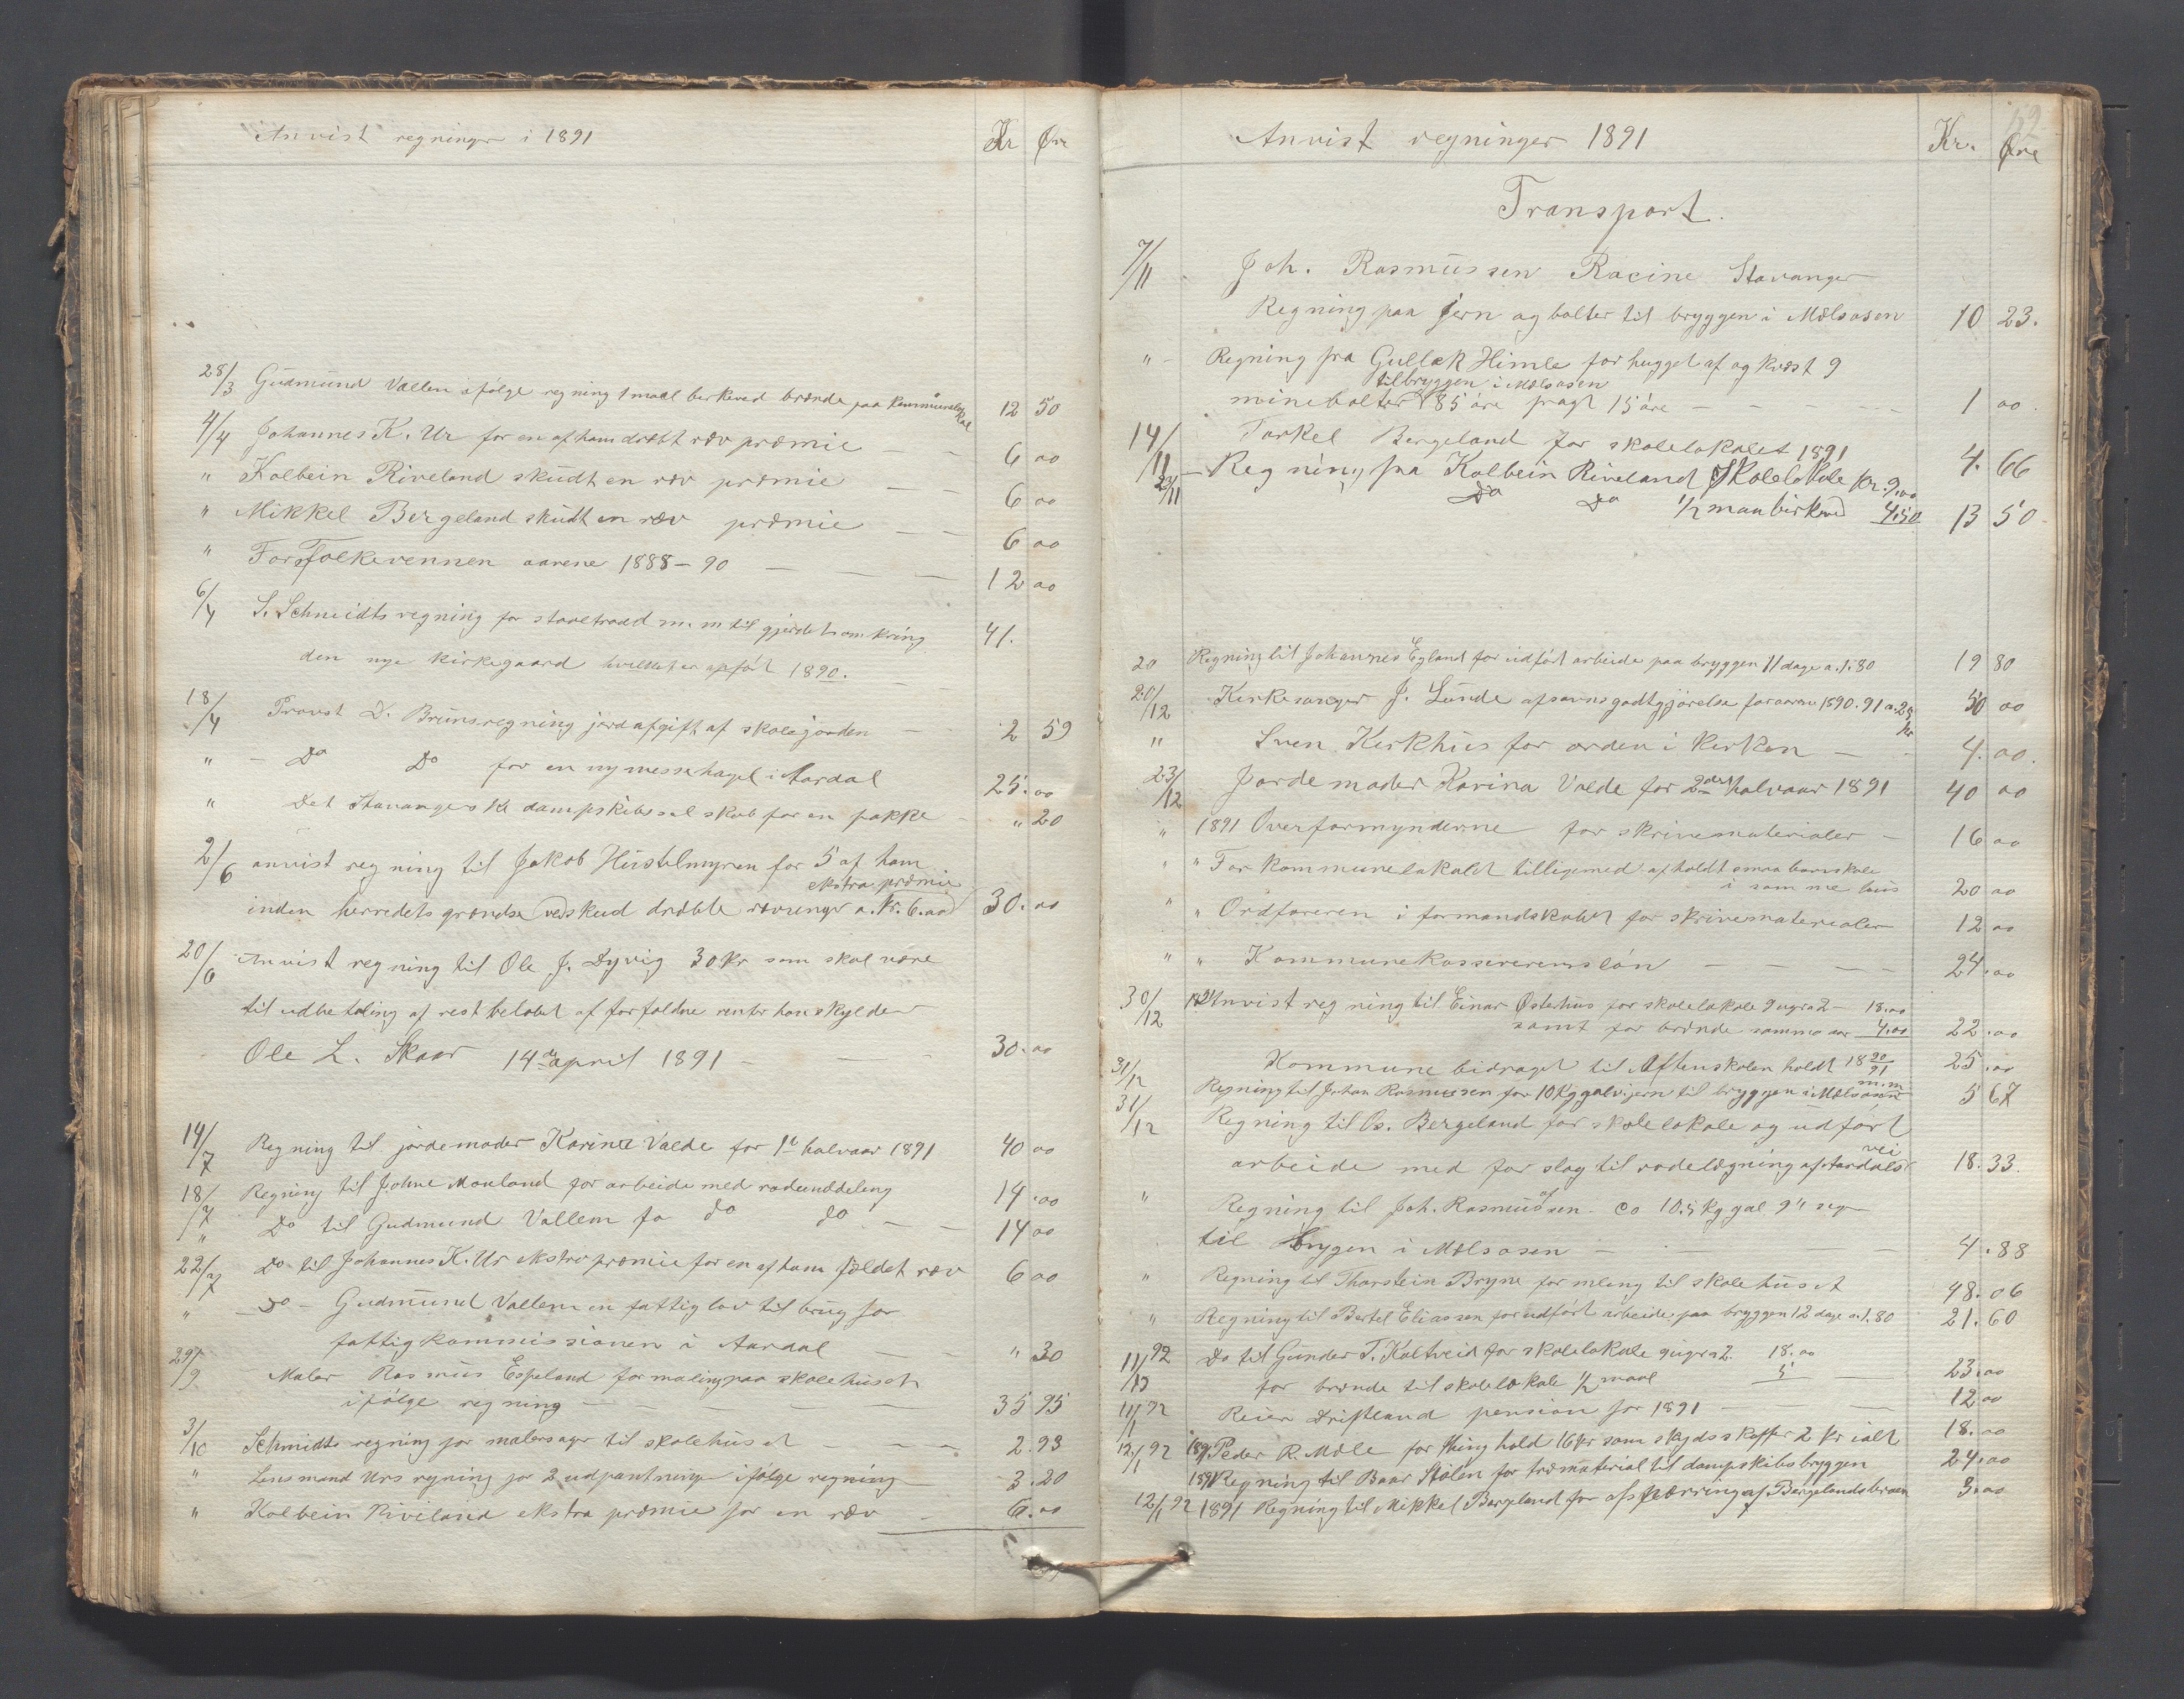 Anvist regninger i 1891 Kr Øre
28/3 Gudmund Vallem ifølge regning 1 maal birkeved brænde paa kommunelokal 12 50
4/4 Johannes K. Ur for en af ham dræbt ræv præmie 6 00
" Kolbein Riveland skudt en ræv præmie 6 00
" Mikkel Bergeland skudt en ræv præmie 6 00
" For Folkevennen aarene 1888-90 12 00
6/4 S. Schmidts regning for staaltraad m.m til gjerdet omkring 41.
den nye kirkegaard hvilket er opført 1890.
18/4 Provst D. Bruns regning jordafgift af skolejorden 2 59
" Do Do for en ny messehagel i Aardal 25.00
" Det Stavangerske dampskibsselskab for en pakke " 20
2/6 anvist regning til Jakob Hustelmyren for 5 af ham
ekstra præmie
inden herredets grændse ved skud dræbte rævunger a. kr. 6.00 30.00
20/6 Anvist regning til Ole J. Dyvig 30 kr som skal være
til udbetaling af restbeløbet af forfaldne renter han skylder
Ole L. Skaar 14de april 1891 - 30.00
14/7 Regning til jordemoder Karina Valde for 1te halvaar 1891 40 00
18/7 Regning til Johne Mouland for arbeide med rodeinddeling 14.00
" Do til Gudmund Vallem fo do do 14 00
22/7 Do til Johannes K. Ur ekstra præmie for en af ham fældet ræv 6 00
" Do - Gudmund Vallem en fattiglov til brug for
fattigkommissionen i Aardal " 30
29/9 Maler Rasmus Espeland for maling paa skolehuset
ifølge regning 35 95
3/10 Schmidts regning for malersager til skolehuset 2.93
" Lensmand Urs regning for 2 udpantninge ifølge regning 3.20
" Kolbein Riveland ekstra præmie for en ræv 6.00
Anvist regninger 1891 Kr. Øre
Transport.
7/11 Joh. Rasmussen Racine Stavanger
Regning paa jern og bolter til bryggen i Mælsosen 10 23.
" Regning fra Gullek Himle for hugget af og kvæst 9
til bryggen i Mælsosen
minebolter 85 øre fragt 15 øre 1 00.
14/11 Torkel Bergeland for skolelokalet 1891 4.66
23/11 Regning fra Kolbein Riveland Skolelokale kr. 9,00
Do Do 1/2 maa birkved 4.50 13 50
20 Regning til Johannes Egland for udført arbeide paa bryggen 11 dage a. 1.80 19 80
20/12 Kirkesanger J. Lunde afsavnsgodtgjørelse for aarene 1890. 91 a. 25 kr 50 00
" Sven Kirkhus for orden i kirken 4.00.
23/12 Jordemoder Karina Valde for 2det halvaar 1891 40 00
" 1891 Overformynderne for skrivematerialer 16 00
" " For kommunelokalet tilligemed afholdt smaabarnskole
i samme hus 20 00
" " Ordføreren i formandskabet for skrivematerialer 12 00
" " Kommunekassererens løn 24.00
30/12 1891 Anvist regning til Einar Østerhus for skolelokale 9 uger a 2 - 18.00
samt for brænde samme aar 4.00 22.00
31/12 Kommune bidraget til Aftenskolen holdt 18 90/91 25.00
31/12 Regning til Johan Rasmussen for 10 Kg galv. jern m.m til bryggen i Mælsosen 5 67
Regning til Os. Bergeland for skolelokale og udført
arbeide med forslag til rodelægning af Aardals vei 18.33.
" Regning til Joh. Rasmussen af ca 10.5 kg gal 9"
til bryggen i Mælsosen 4.88
" Regning til Thorstein Bryne for maling til skolehuset 48.06
" Regning til Bertel Eliassen for udført arbeide paa bryggen 12 dage a. 1.80 21.60
11/1 92 Do til Gunder T. Koltveid for skolelokale 9 uger a 2. 18.00
for brænde til skolelokale 1/2 maal 5 23.00
11/1 92 Reier Driftland pension for 1891 12 00
12/1 92 1891 Peder R. Mæle for thinghold 16 kr som skydsskaffer 2 kr ialt 18.00
1891 Regning til Baar Stølen for træmaterial til dampskibsbryggen 24.00
12/1 92 1891 Regning til Mikkel Bergeland for afspærring af Bergelandsbroen 3.00